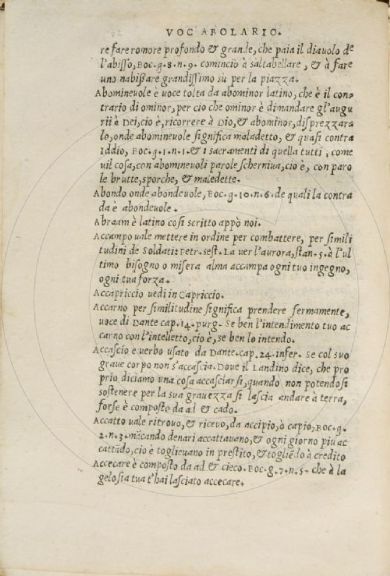 VOC ABOLARIO.
re fare romore profondo & grande, che paia il diauolo de
l'abisso, Boc.g.8.n.9. comincio à saltabellare, & à fare
uno nabissare grandissimo su per la piazza.
Abomineuole e uoce tolta da abominor latino, che è il con
trario di ominor, per cio che ominor è dimandare gl'augu
rii à Dei, cio è, ricorrere à Dio, & abominor, disprezzara
lo, onde abomineuole significa maladetto, & quasi contra
Iddio, Boc.3.1.n.1. & i sacramenti di quella tutti, come
uil cosa, con abomineuoli parole scherniua, cio è, con paro
le brutte, sporche, & maledette.
Abondo onde abondeuole, Boc.g.10.n.6. de quali la contra
da è abondeuole.
Abraam è latino cosi scritto appò noi.
Accampo uale mettere in ordine per combattere, per simili
tudini de Soldati: Petr. sest. La uer l'aurora, stan.5. à l'ul
timo bisogno o misera alma accampa ogni tuo ingegno,
ogni tua forza.
Accapriccio uedi in Capriccio.
Accarno per similitudine significa prendere fermamente,
uoce di Dante cap.14.purg. Se ben l'intendimento tuo ac
carno con l'intelletto, cio è, se ben lo intendo.
Accascio e uerbo usato da Dante.cap.24.infer. Se col suo
graue corpo non s'accascia. Doue il Landino dice, che pro
prio diciamo una cosa accasciarsi, quando non potendosi
sostenere per la sua grauezza si lascia andare à terra,
forse è composto da ad & cado.
Accatto uale ritrouo, & riceuo, da accipio, ò capio, Boc.g.
2.n.3. mācando denari accattaueno, & ogni giorno piu ac
cattādo, cio è toglieuano in prestito, & togliēdo à credito
Accecare è composto da ad & cieco. Boc.g.7.n.5. che à la
gelosia tua t'hai lasciato accecare.